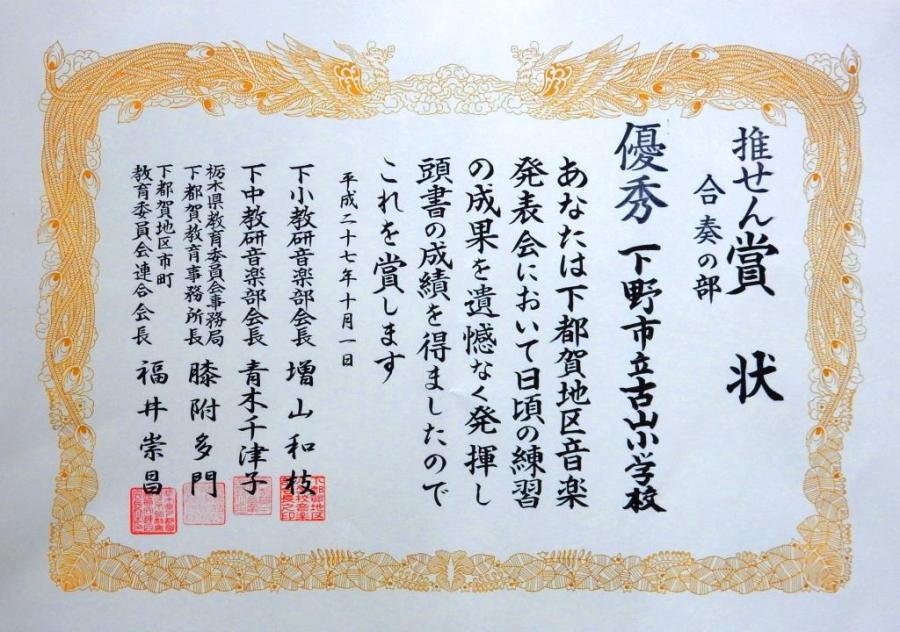 推せん賞 状
合奏の部
優秀 下野市立古山小学校
あなたは下都賀地区音楽
発表会において日頃の練習
の成果を遺憾なく発揮し
頭書の成績を得ましたので
これを賞します
平成二十七年十月一日
下小教研音楽部会長 増山和枝
下中教研音楽部会長 青木千津子
栃木県教育委員会事務局
下都賀教育事務所長 膝附多門
下都賀地区市町
教育委員会連合会長 福井崇昌